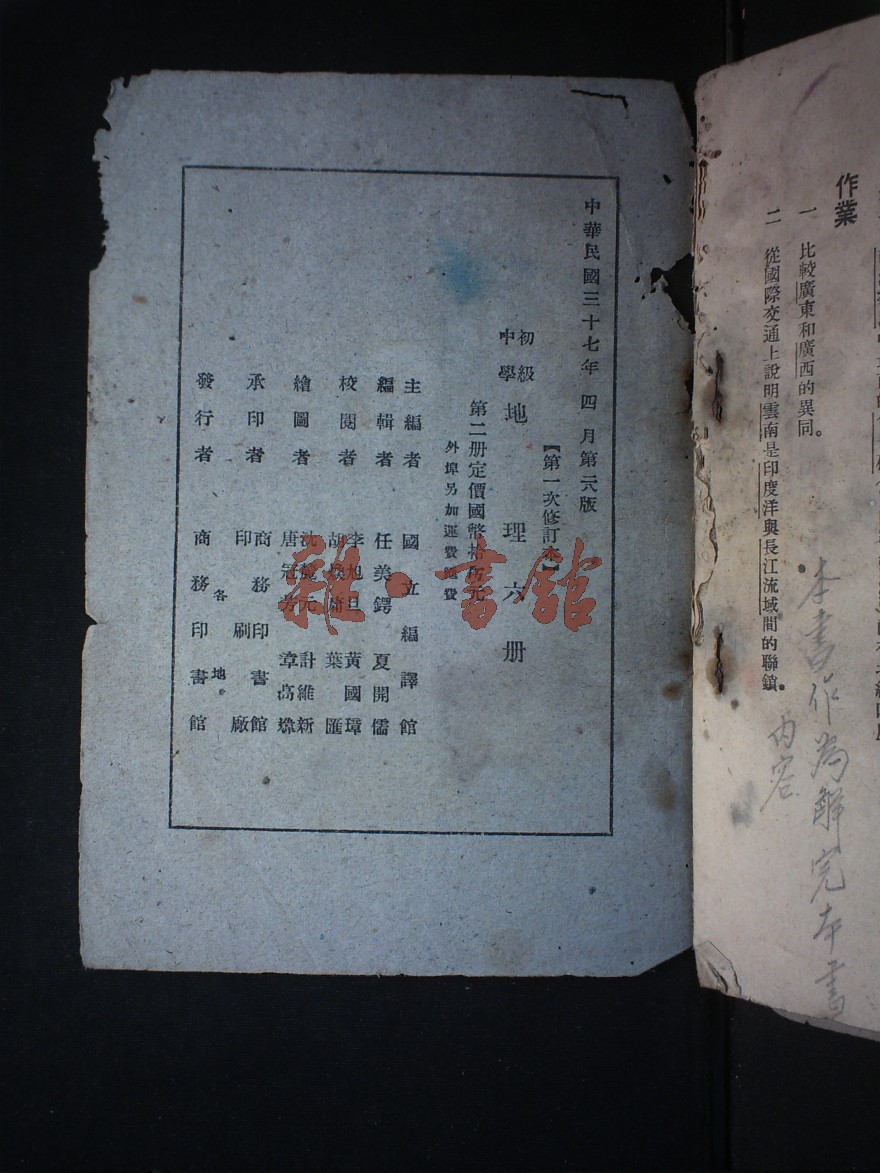 作業
一 比較廣東和廣西的異同。
二 從國際交通上說明雲南是印度洋與長江流域間的聯鎖。
本書作為解完本書
内容
中華民國三十七年四月第六版
【第一次修訂本】
初級中學 地理 六册
第二册定價國幣拾元
外埠另加運費滙費
主編者 國立編譯館
編輯者 任美鍔 夏開儒
校閱者 李旭旦 黃國璋
胡煥庸 葉匯
繪圖者 計維新
唐冠芳 章高煒
承印者 商務印書館
印刷廠
發行者 各地 商務印書館
雜·書館